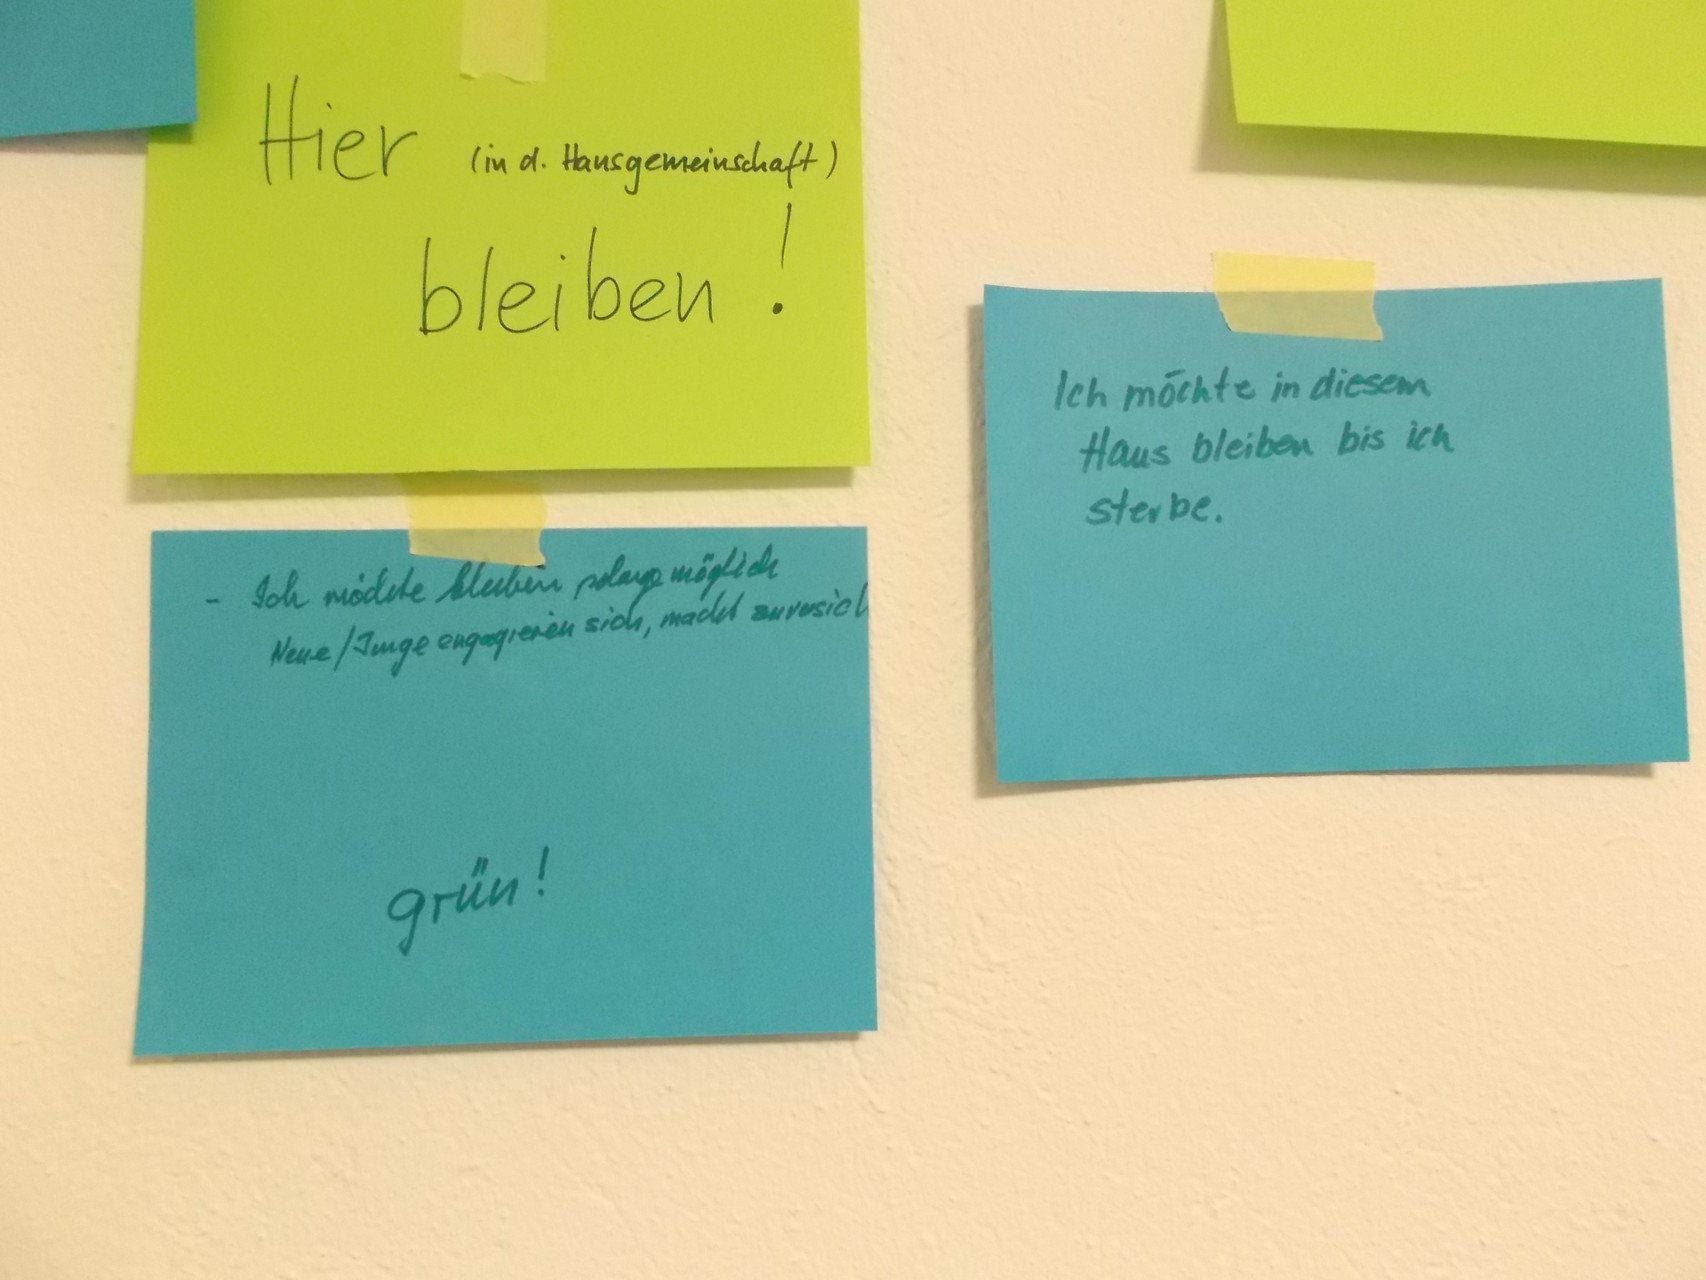 Hier (in d. Hausgemeinschaft)
bleiben!
- Ich möchte bleiben solange möglich
Neue/Junge engagieren sich, macht zuversich
grün!
Ich möchte in diesem
Haus bleiben bis ich
sterbe.